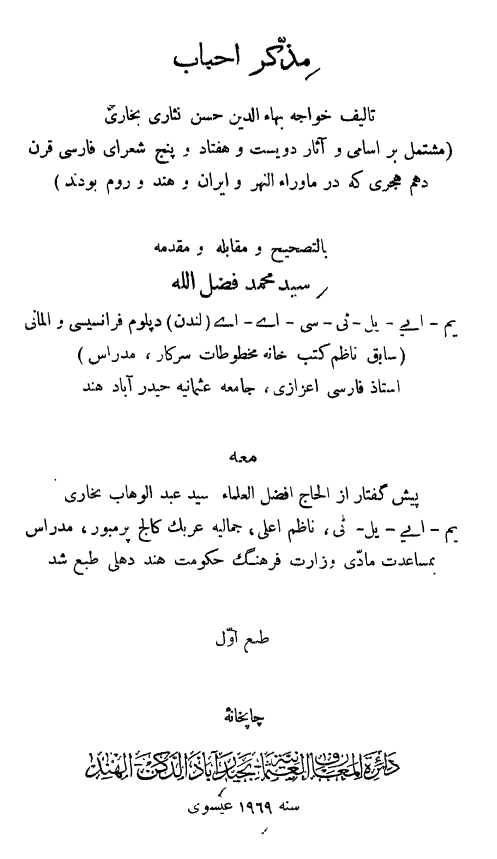 مذکّر احباب
تالیف خواجه بهاء الدین حسن نثاری بخاریؒ
(مشتمل بر اسامی و آثار دویست و هفتاد و پنج شعرای فارسی قرن
دهم هجری که در ماوراء النهر و ایران و هند و روم بودند)
بالتصحیح و مقابله و مقدمه
سید محمد فضل الله
یم - ایے - یل - ٹی - سی - اے - اے (لندن) دپلوم فرانسیسی و المانی
(سابق ناظم کتب خانه مخطوطات سرکار ، مدراس)
استاذ فارسی اعزازی، جامعه عثمانیه حیدر آباد هند
معه
پیش گفتار از الحاج افضل العلماء سید عبد الوهاب بخاری
یم - ایے - یل - ٹی، ناظم اعلی، جمالیه عربك کالج پرمبور، مدراس
بمساعدت مادّی وزارت فرهنگ حکومت هند دهلی طبع شد
طبع اوّل
چاپخانهٔ
دائرة المعارف العثمانية بحيدر آباد الدكن الهند
سنه ۱۹۶۹ عیسوی